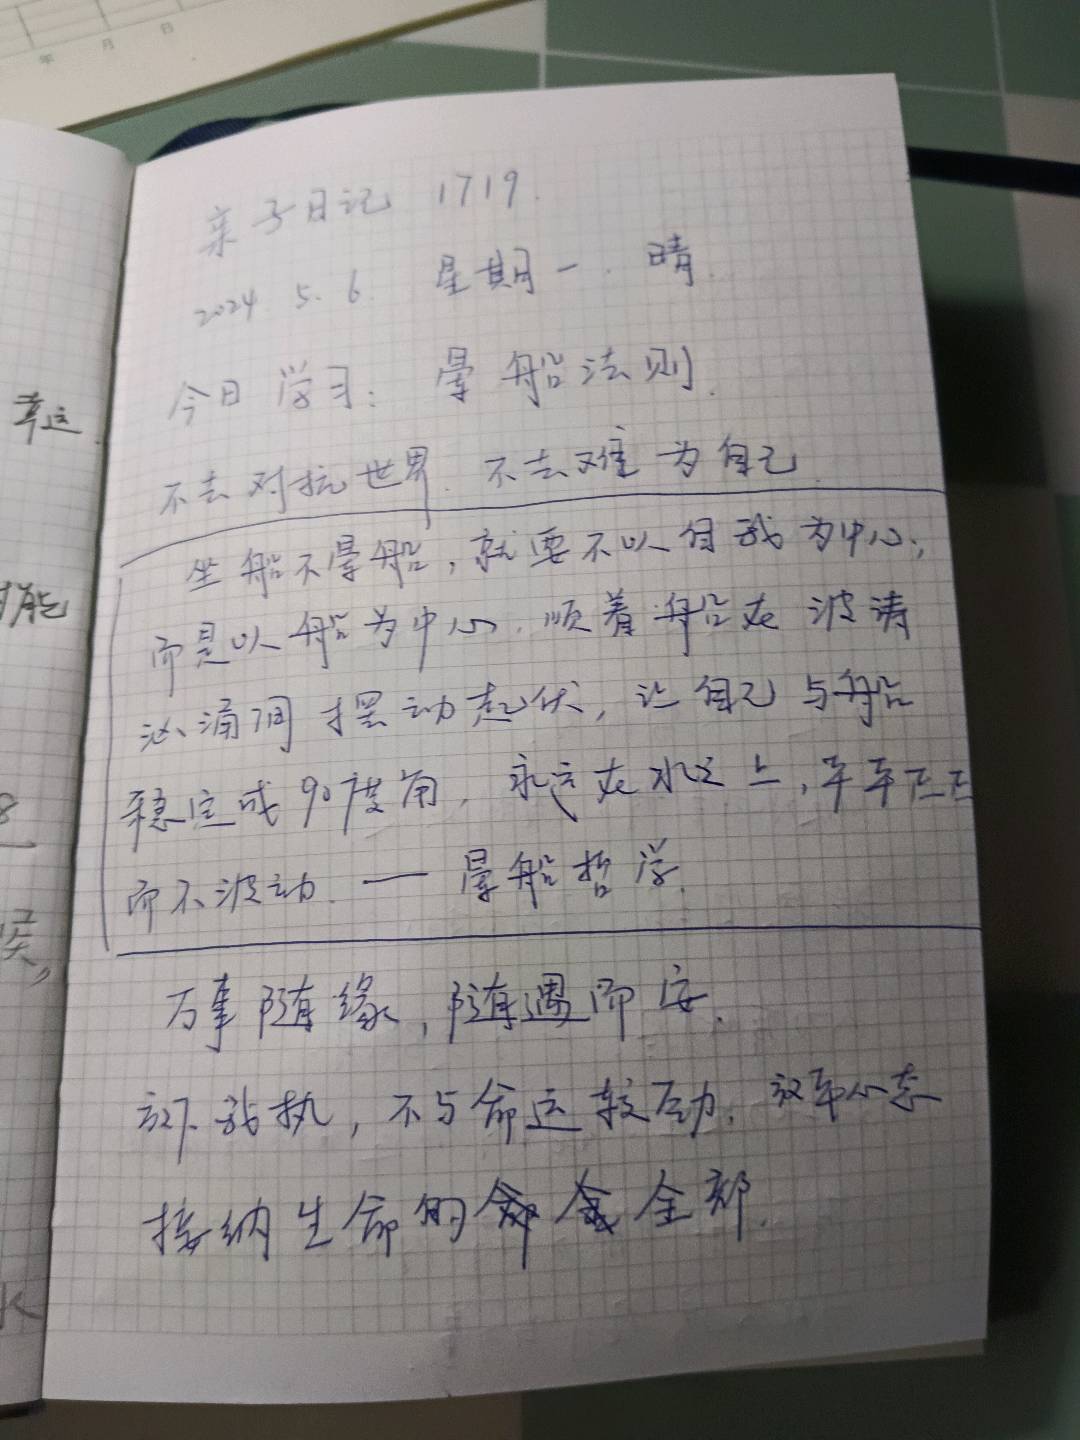 年 月 日
亲子日记 1719.
2024. 5. 6. 星期一. 晴.
今日学习: 晕船法则.
不去对抗世界. 不去难为自己.
坐船不晕船, 就要不以自我为中心,
而是以船为中心. 顺着船在波涛
汹涌间摆动起伏, 让自己与船
稳定成90度角, 永远在水之上, 平平正正
而不波动. — 晕船哲学.
万事随缘, 随遇而安.
放下我执, 不与命运较劲. 放平心态
接纳生命的全部.
幸运.
能
8